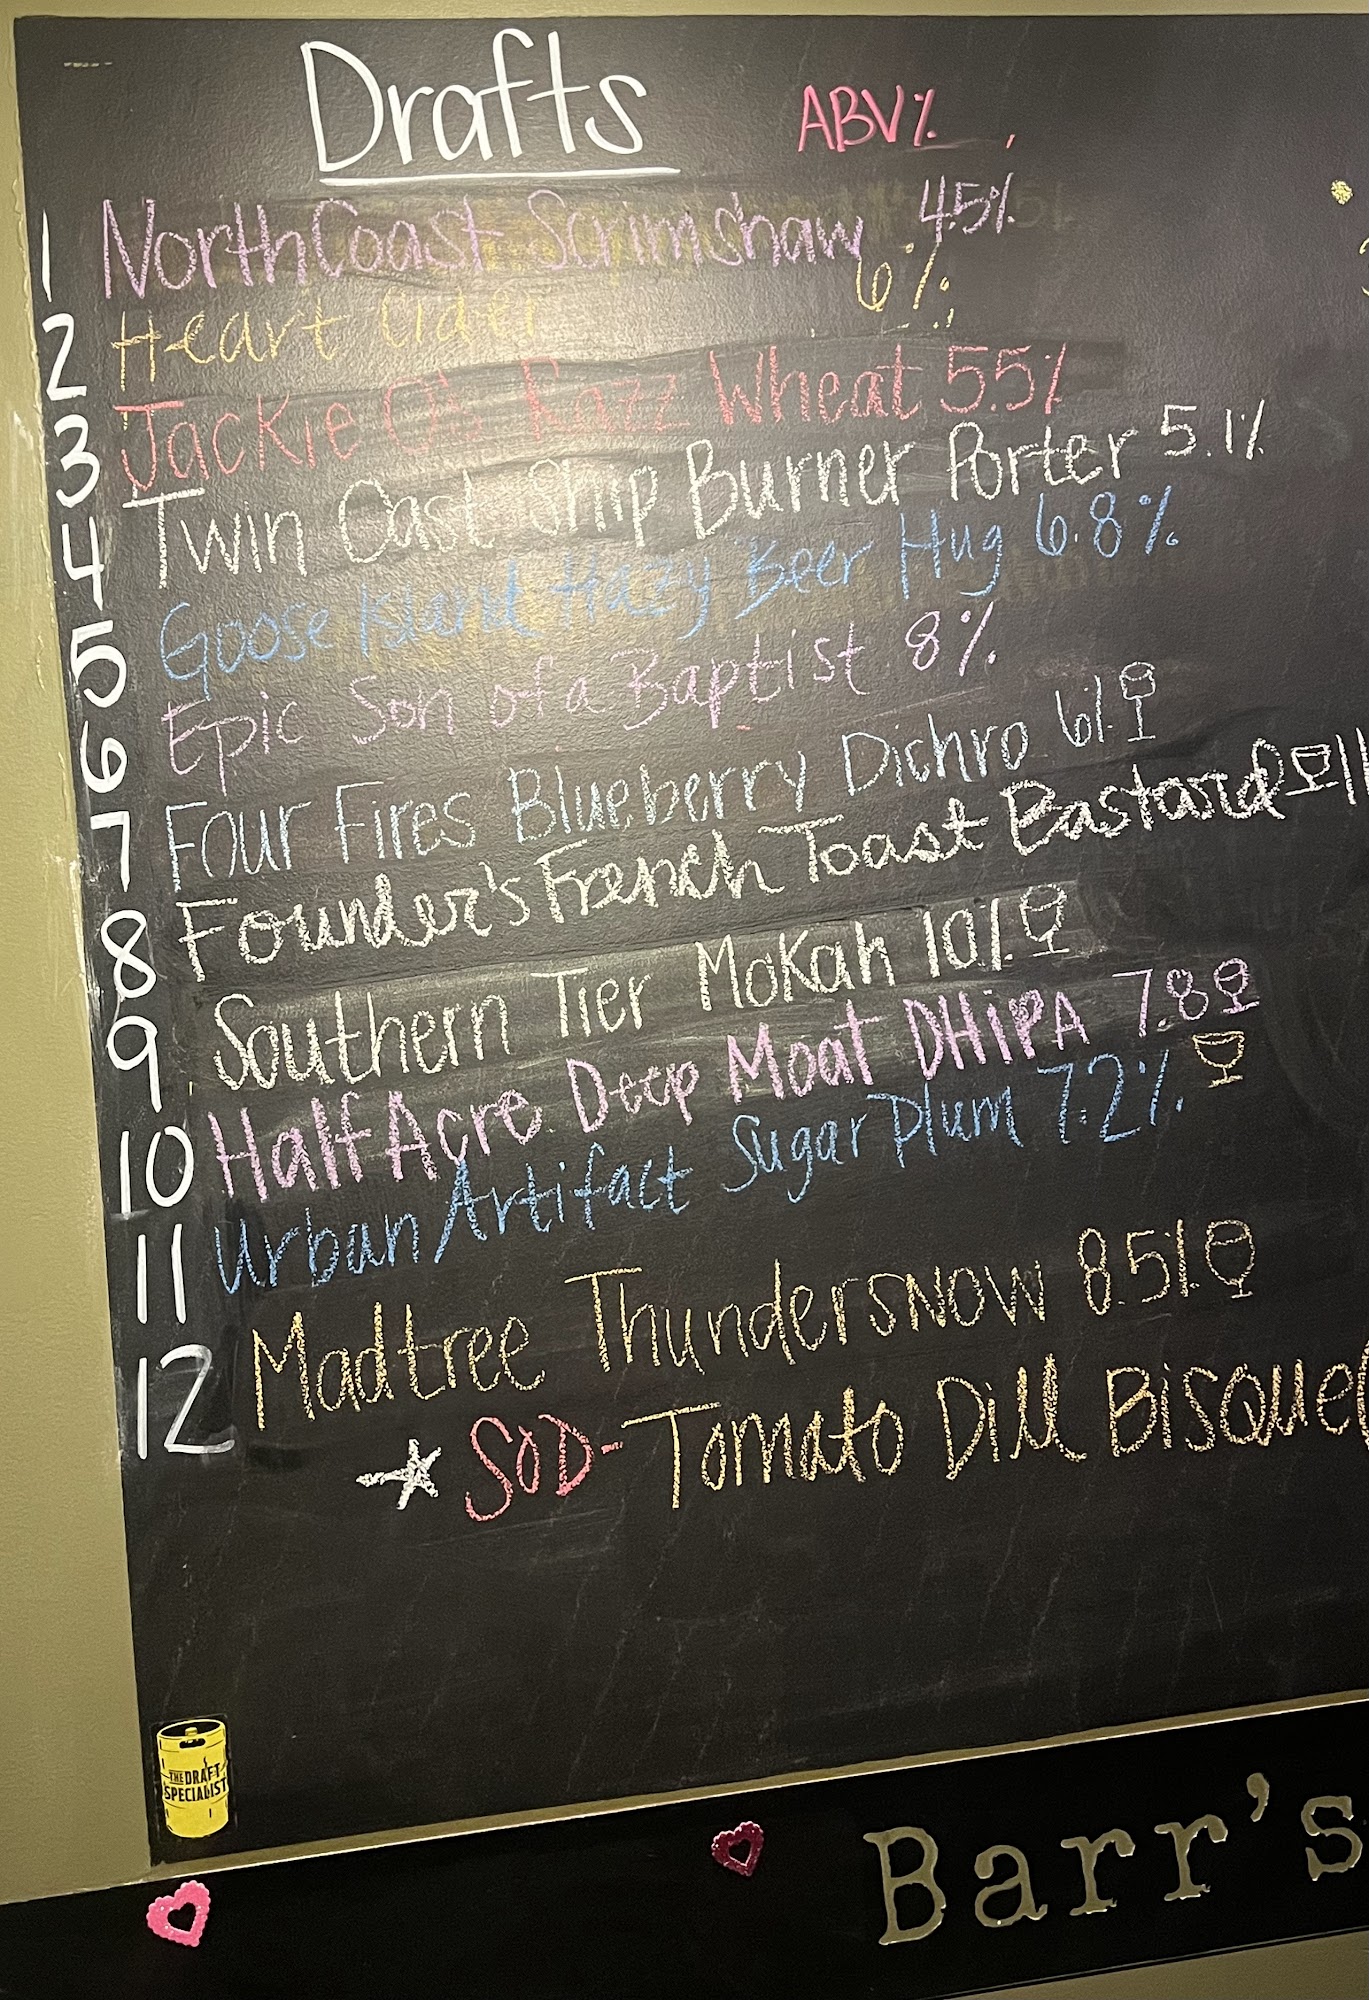 Drafts ABV%
1 NorthCoast Scrimshaw 4.5%
2 Heart Cider 6%
3 Jackie O's Razz Wheat 5.5%
4 Twin Oast Ship Burner Porter 5.1%
5 Goose Island Hazy Beer Hug 6.8%
6 Epic Son of a Baptist 8%
7 Four Fires Blueberry Dichro 6%
8 Founder's French Toast Bastard 11
9 Southern Tier Mokah 10%
10 Half Acre Deep Moat DHIPA 7.8
11 Urban Artifact Sugar Plum 7.2%
12 Madtree Thundersnow 8.5%
SOD- Tomato Dill Bisque
THE DRAFT
SPECIALIST
Barr's